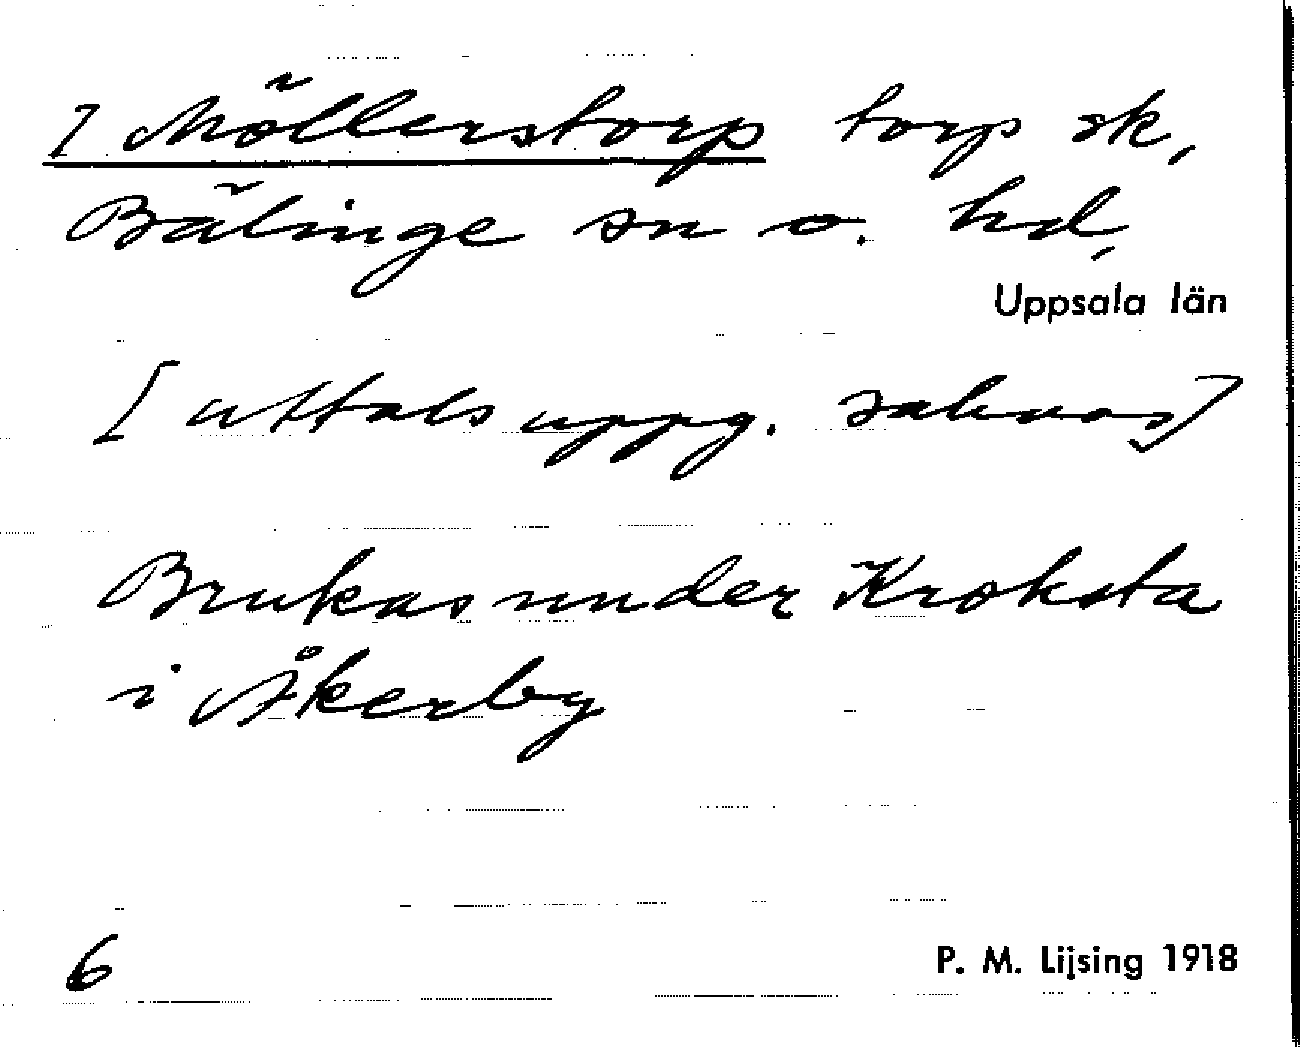 I Möllerstorp torp sk,
Bälinge sn o. hd,
Uppsala län
[uttalsuppg. saknas]
Brukas under Kroksta
i Åkerby
6
P. M. Lijsing 1918